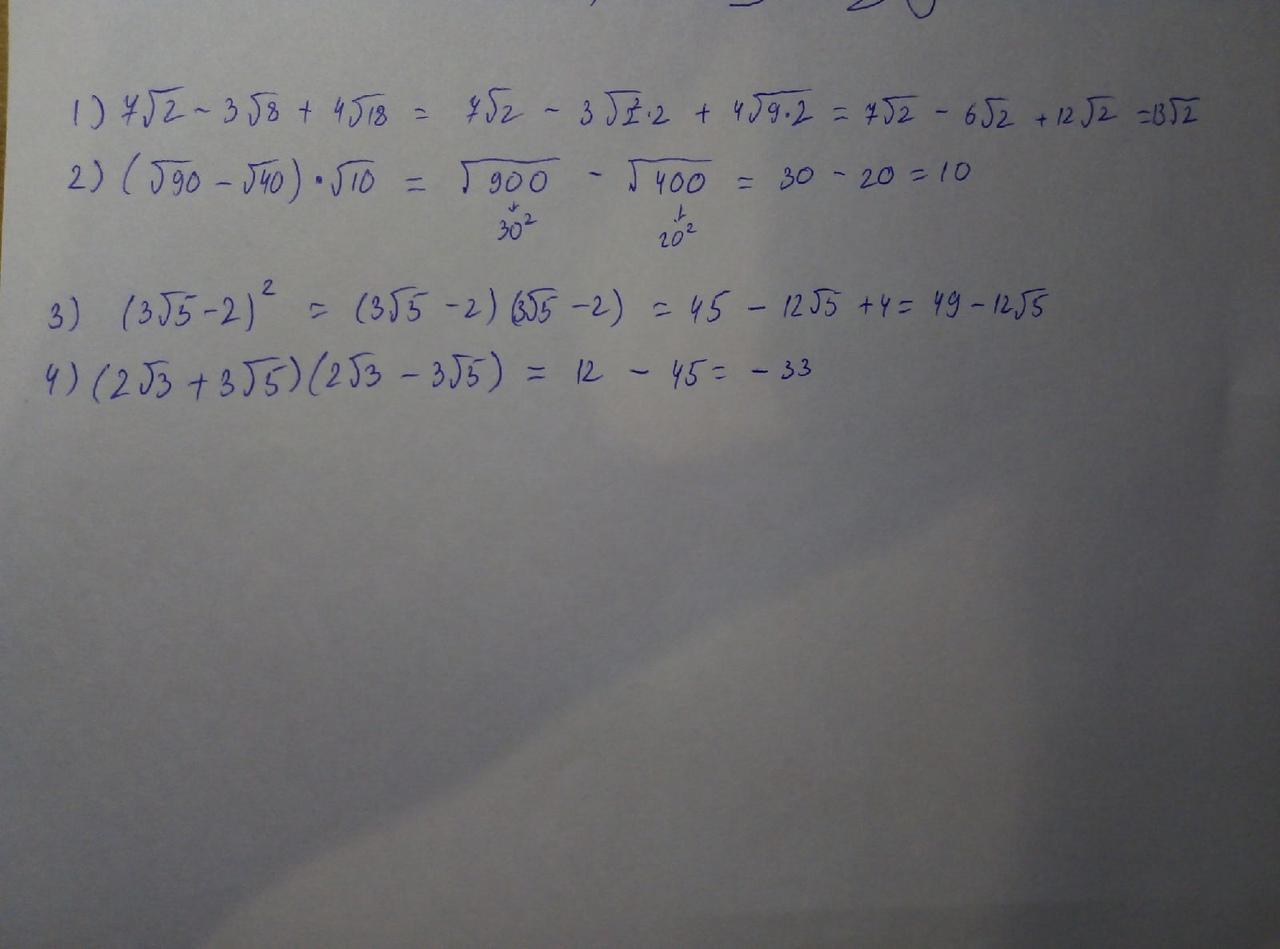 1) 7√2 - 3√8 + 4√18 = 7√2 - 3√4·2 + 4√9·2 = 7√2 - 6√2 + 12√2 = 13√2
2) (√90 - √40)·√10 = √900 - √400 = 30 - 20 = 10
↓ ↓
30² 20²
3) (3√5 - 2)² = (3√5 - 2)(3√5 - 2) = 45 - 12√5 + 4 = 49 - 12√5
4) (2√3 + 3√5)(2√3 - 3√5) = 12 - 45 = - 33